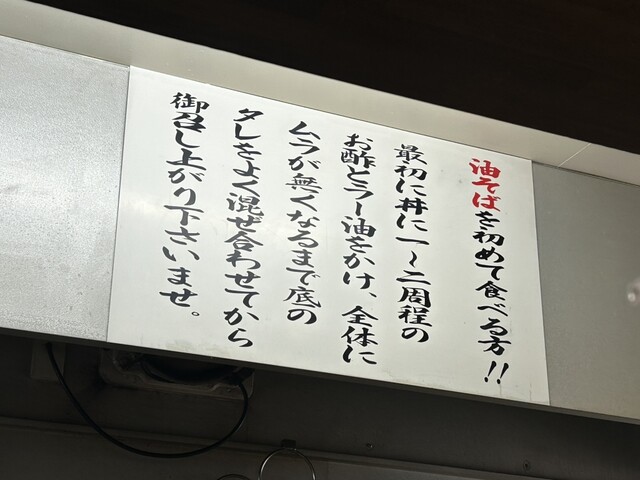 油そばを初めて食べる方!!
最初に丼に一〜二周程の
お酢とラー油をかけ、全体に
ムラが無くなるまで底の
タレをよく混ぜ合わせてから
御召し上がり下さいませ。